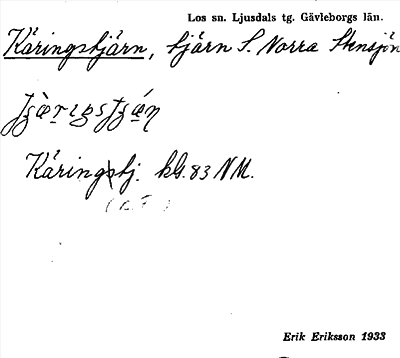 Los sn. Ljusdals tg. Gävleborgs län.
Käringstjärn, tjärn S. Norra Stensjön
Käringstj. kG. 83 NM.
Erik Eriksson 1933